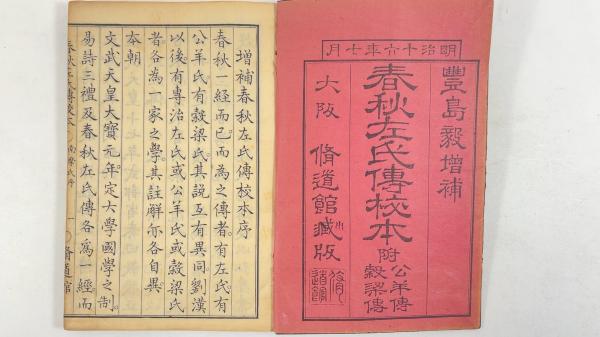 明治十六年七月
豐島毅增補
春秋左氏傳校本
附
公羊傳
穀梁傳
大阪 脩道館藏版
增補春秋左氏傳校本序
春秋一經而已而為之傳者有左氏有
公羊氏有穀梁氏其說互有異同劉漢
以後有專治左氏或公羊氏或穀梁氏
者各為一家之學其註解亦各自異
本朝
文武天皇大寶元年定大學國學之制
易詩三禮及春秋左氏傳各為一經而
脩道館